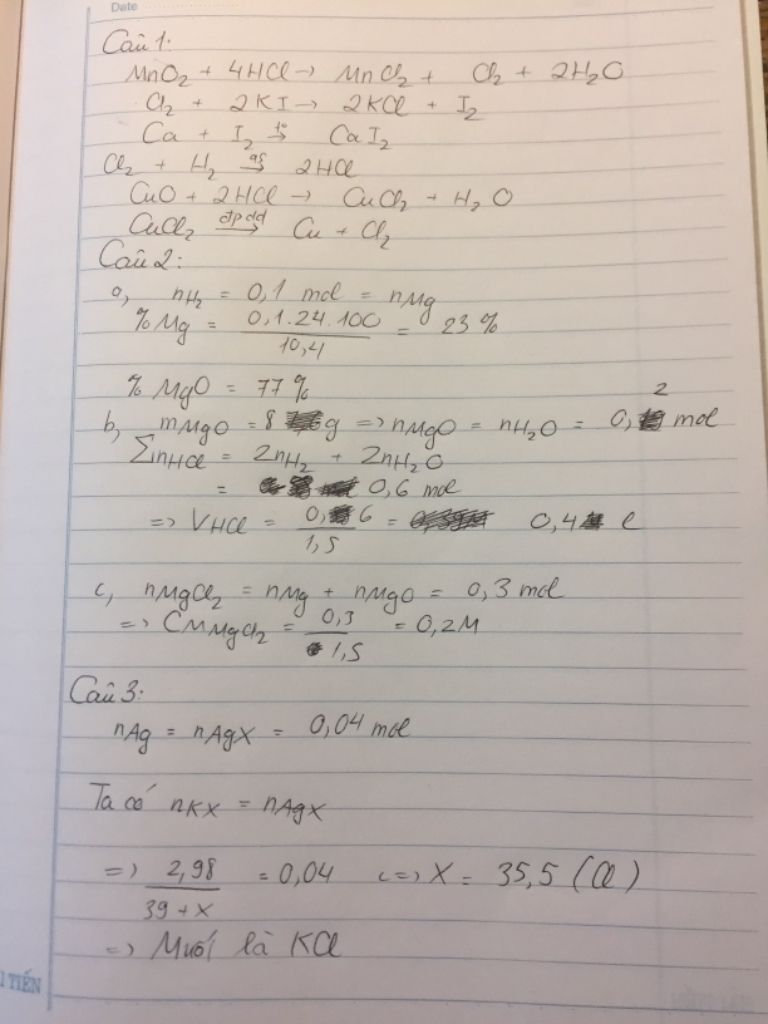 Date
Câu 1:
MnO2 + 4HCl → MnCl2 + Cl2 + 2H2O
Cl2 + 2KI → 2KCl + I2
Ca + I2 t° → CaI2
Cl2 + H2 as → 2HCl
CuO + 2HCl → CuCl2 + H2O
CuCl2 đpdd → Cu + Cl2
Câu 2:
a, nH2 = 0,1 mol = nMg
% Mg = 0,1.24.100 / 10,4 = 23 %
% MgO = 77 %
b, mMgO = 8 g => nMgO = nH2O = 0,2 mol
ΣnHCl = 2nH2 + 2nH2O
= 0,6 mol
=> VHCl = 0,6 / 1,5 = 0,4 l
c, nMgCl2 = nMg + nMgO = 0,3 mol
=> CMMgCl2 = 0,3 / 1,5 = 0,2M
Câu 3:
nAg = nAgX = 0,04 mol
Ta có nKX = nAgX
=> 2,98 / 39 + X = 0,04 <=> X = 35,5 (Cl)
=> Muối là KCl
TIẾN